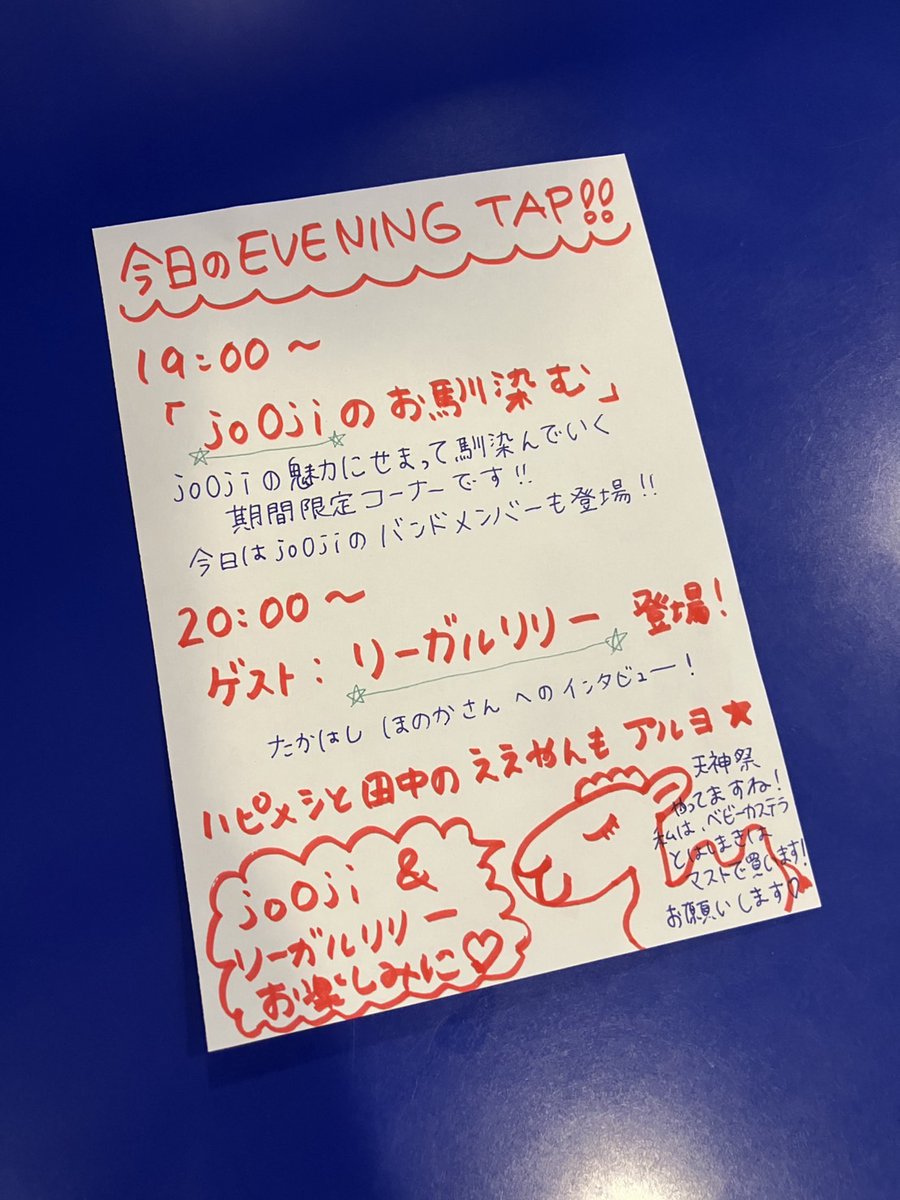 今日のEVENING TAP!!
19:00〜
「joOjiのお馴染む」
joOjiの魅力にせまって馴染んでいく
期間限定コーナーです!!
今日はjoOjiのバンドメンバーも登場!!
20:00〜
ゲスト:リーガルリリー登場!
たかはし ほのかさんへのインタビュー!
ハピメシと田中のええやんもアルヨ★
天神祭
やってますね!
私は、ベビーカステラ
とはしまきは
マストで買います!
お願いします♡
joOji &
リーガルリリー
お楽しみに♡